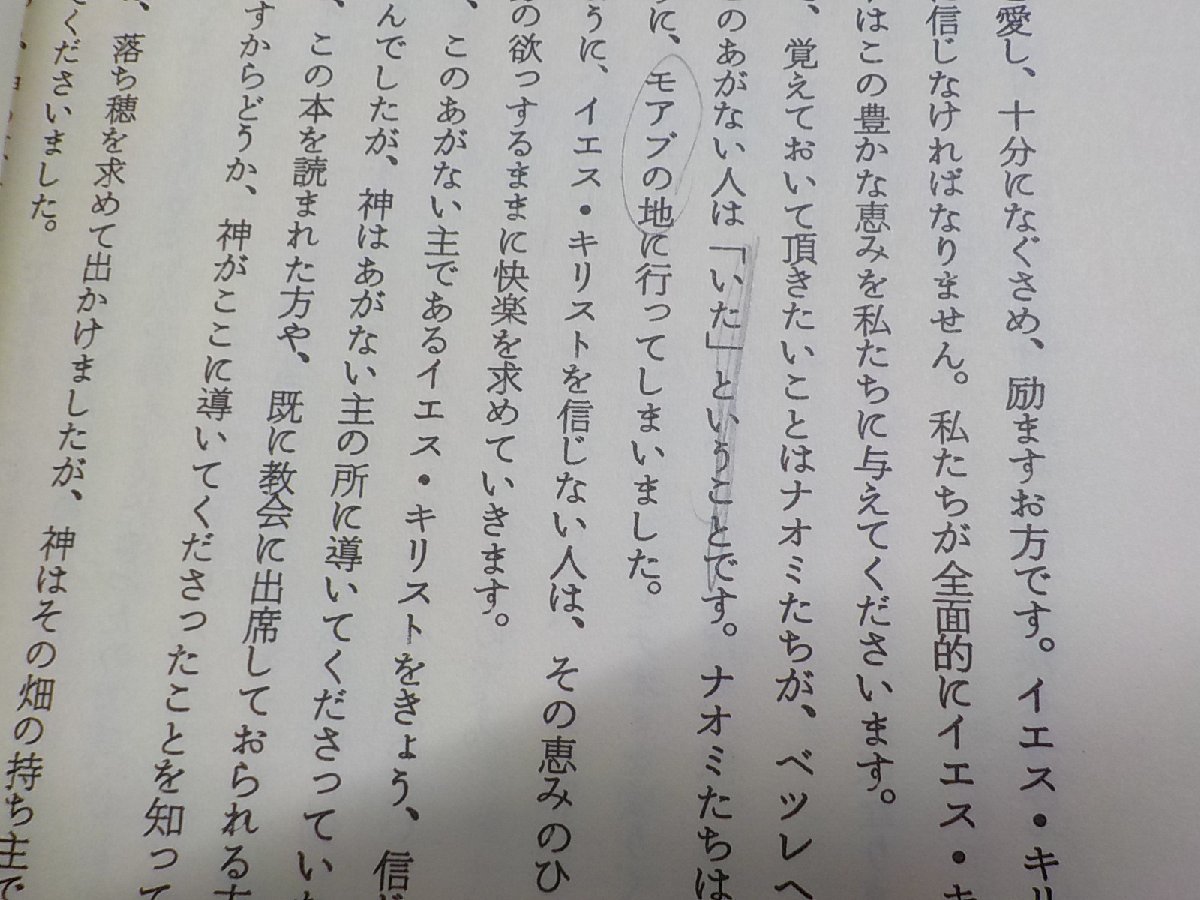 愛し、十分になぐさめ、励ますお方です。イエス・キリ
信じなければなりません。私たちが全面的にイエス・キ
はこの豊かな恵みを私たちに与えてくださいます。
、覚えておいて頂きたいことはナオミたちが、ベツレヘ
のあがない人は「いた」ということです。ナオミたちは
に、モアブの地に行ってしまいました。
うに、イエス・キリストを信じない人は、その恵みのひ
の欲っするままに快楽を求めていきます。
、このあがない主であるイエス・キリストをきょう、信じ
んでしたが、神はあがない主の所に導いてくださってい
、この本を読まれた方や、既に教会に出席しておられる方
すからどうか、神がここに導いてくださったことを知って
、落ち穂を求めて出かけましたが、神はその畑の持ち主で
てくださいました。